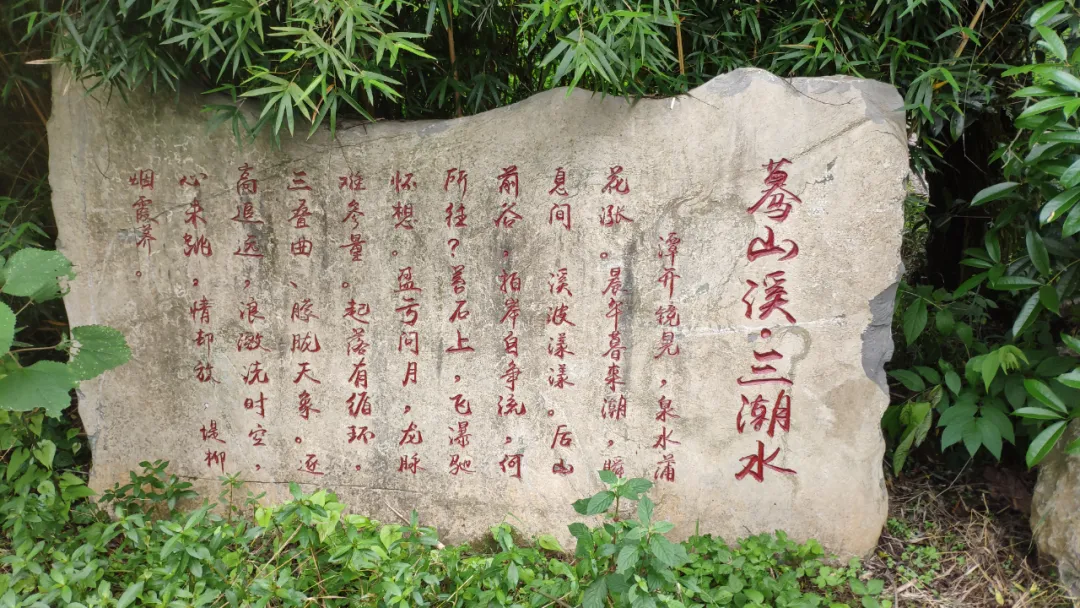 蓦山溪·三潮水
潭开镜晃，泉水蒲
花涨。晨午暮来潮，瞬
息间 溪波漾漾。后山
前谷，拍岸自争流，何
所往？着石上，飞瀑驰
怀想。盈亏问月，龙脉
难参量。起落有循环。
三叠曲、朦胧天象。逐
高追远，浪激洗时空，
心来跳，情却放 堤柳
烟霞养。